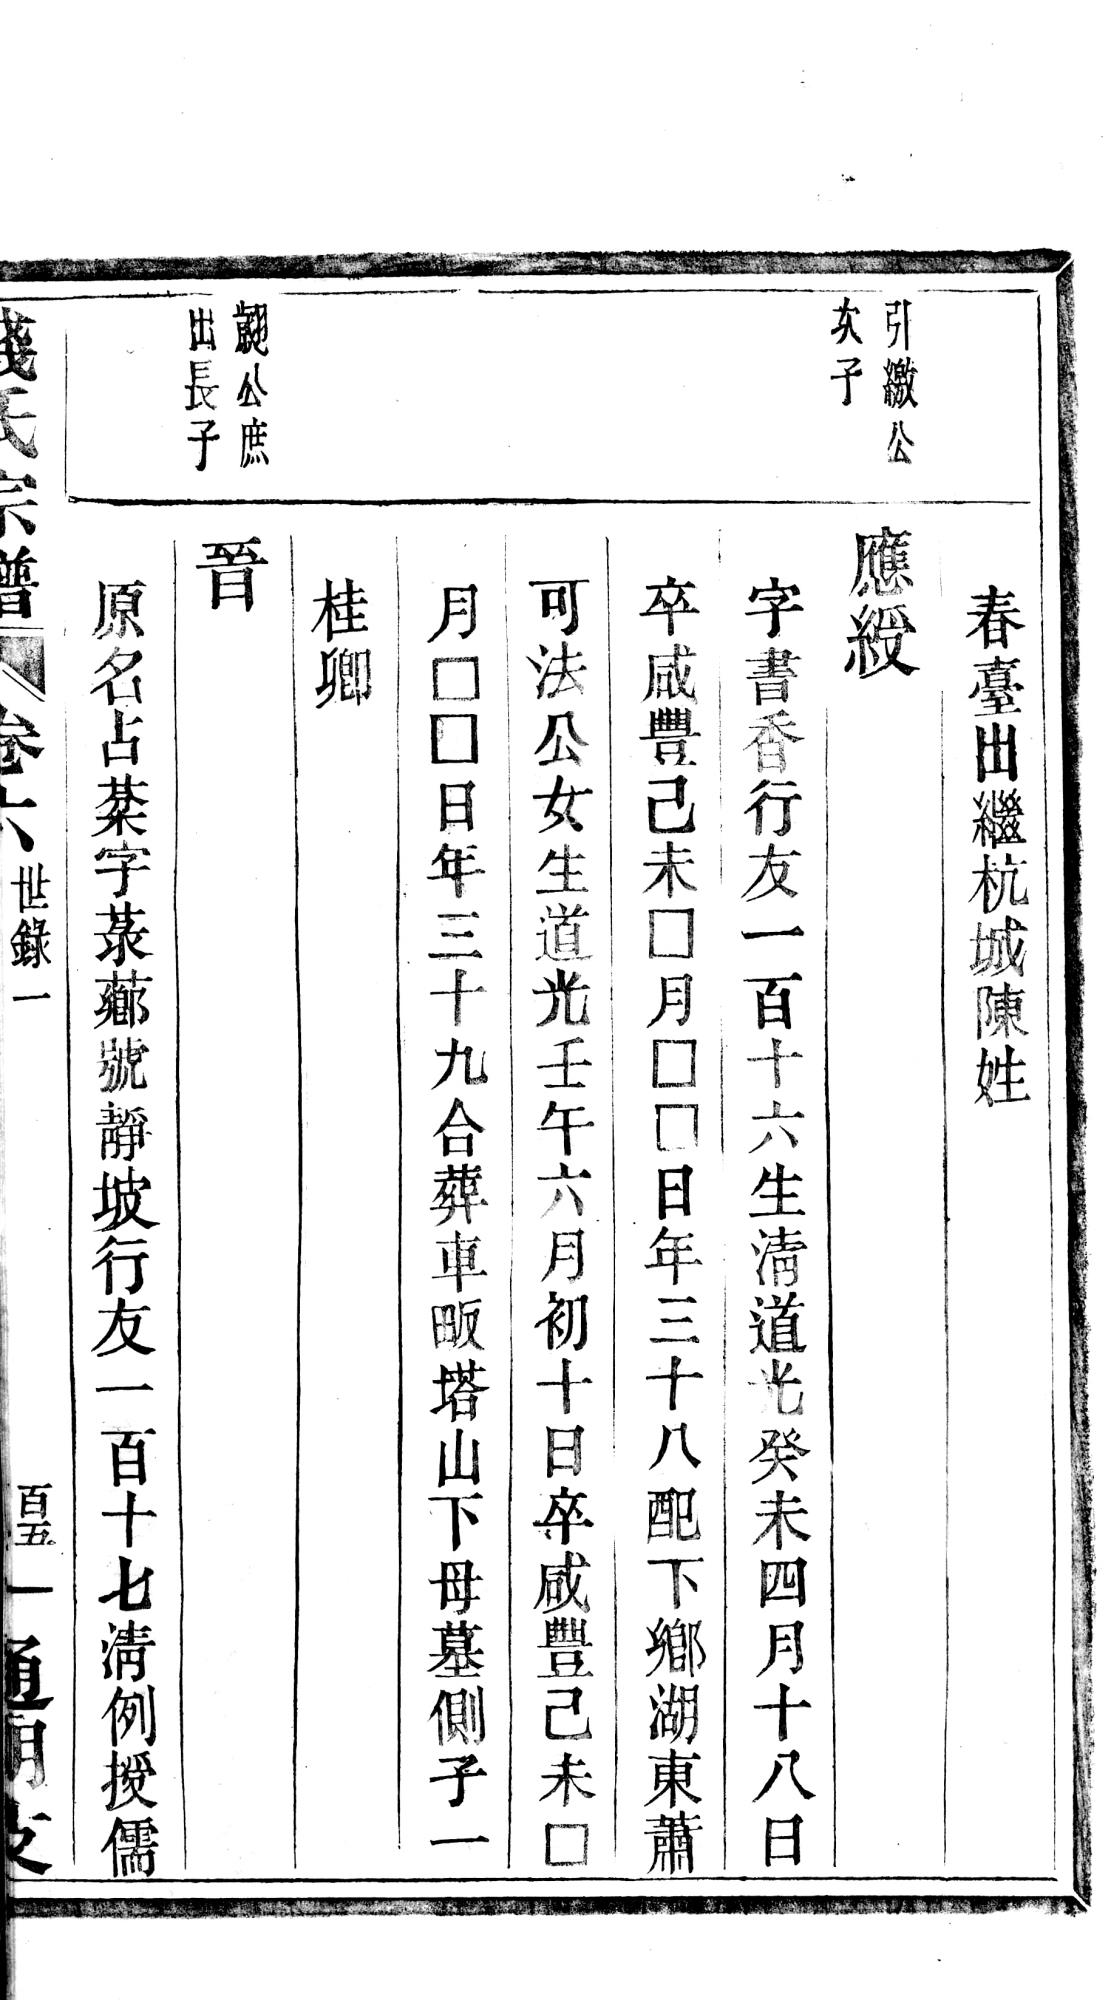 引繳公
次子
春臺出繼杭城陳姓
應綬
字書香行友一百十六生淸道光癸未四月十八日
卒咸豐己未□月□□日年三十八配下鄉湖東蕭
可法公女生道光壬午六月初十日卒咸豐己未□
月□□日年三十九合葬車畈塔山下母墓側子一
桂卿
公庶
出長子
晉
原名占棻字菉薌號靜坡行友一百十七淸例授儒
錢氏宗譜 卷六 世錄一 百五 通明支